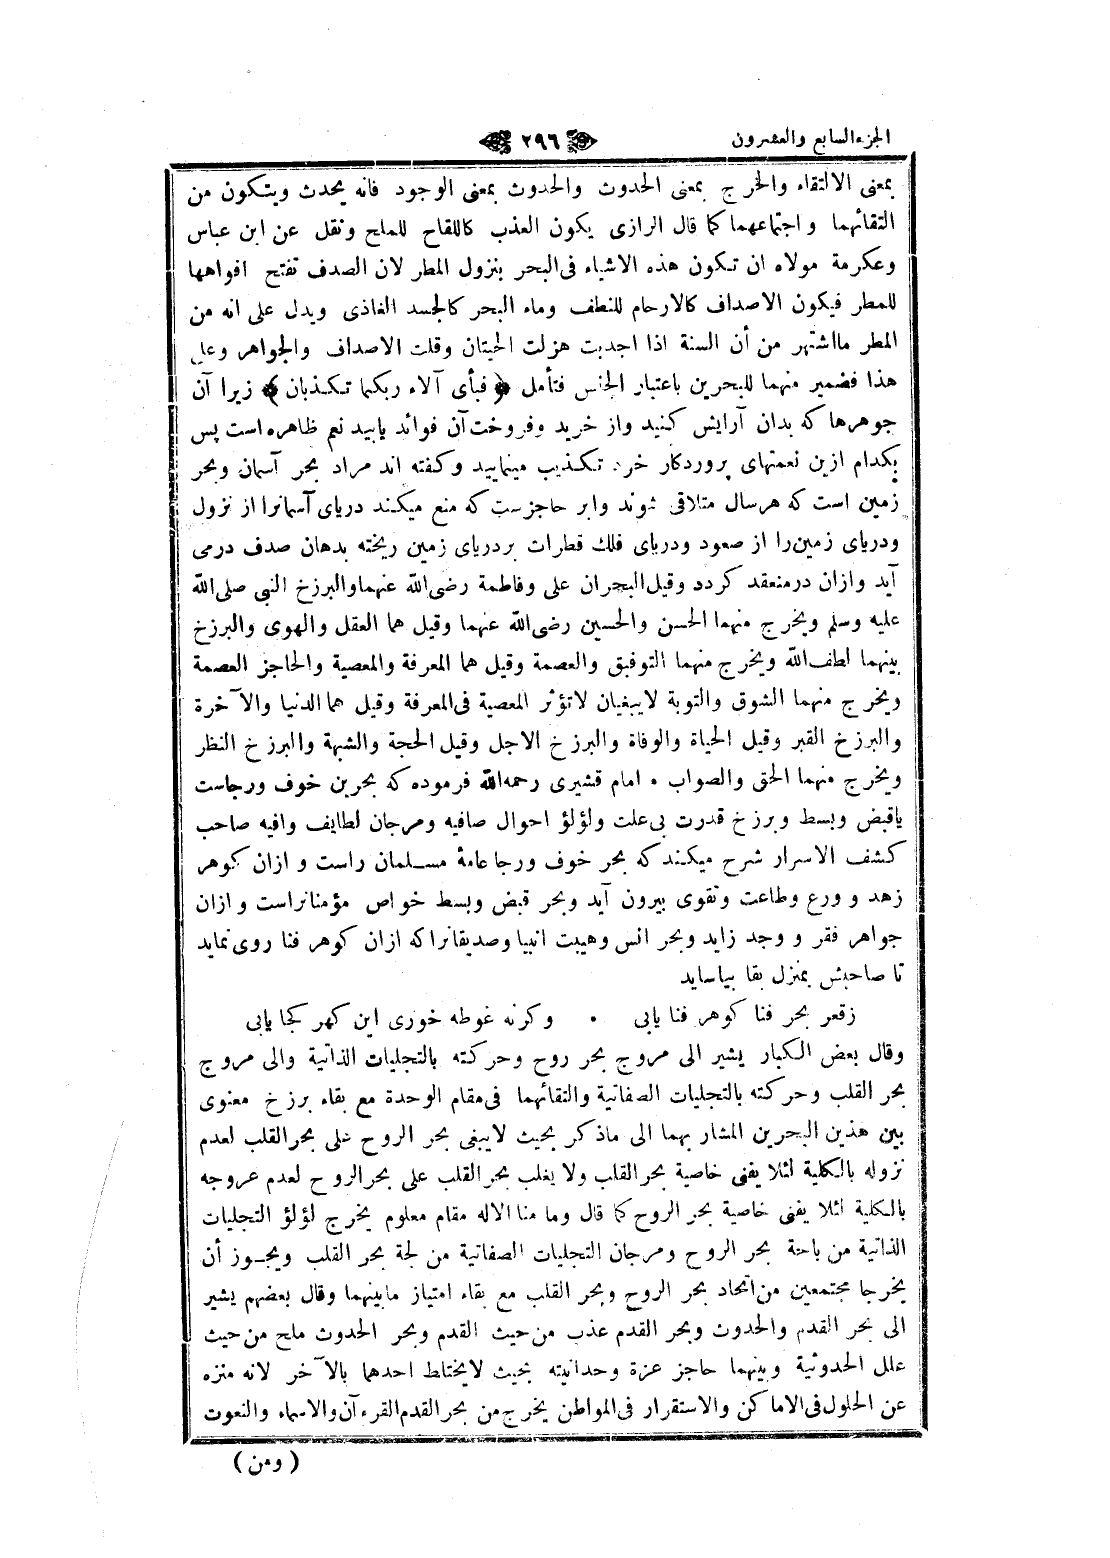 الجزء السابع والعشرون
٢٩٦
بمعنى الالتقاء والخرج بمعنى الحدوث والحدوث بمعنى الوجود فانه يحدث ويتكون من
التقائهما واجتماعهما كما قال الرازى يكون العذب كاللقاح للملح ونقل عن ابن عباس
وعكرمة مولاه ان تكون هذه الاشياء فى البحر بنزول المطر لان الصدف تفتح افواهها
للمطر فيكون الاصداف كالارحام للنطف وماء البحر كالجسد الغاذى ويدل على انه من
المطر مااشتهر من أن السنة اذا اجدبت هزلت الحيتان وقلت الاصداف والجواهر وعلى
هذا فضمير منهما للبحرين باعتبار الجنس فتأمل ﴿ فبأى آلاء ربكما تكذبان ﴾ زيرا آن
جوهرها كه بدان آرايش كنيد واز خريد وفروخت آن فوائد يابيد نعم ظاهره است پس
بكدام ازين نعمتهاى پروردكار خود تكذيب مينماييد وكفته اند مراد بحر آسمان وبحر
زمين است كه هرسال متلاقى شوند وابر حاجزست كه منع ميكند درياى آسمانرا از نزول
ودرياى زمين را از صعود ودرياى فلك قطرات بردرياى زمين ريخته بدهان صدف درمى
آيد وازان درمنعقد كردد وقيل البحران على وفاطمة رضى الله عنهما والبرزخ النبى صلى الله
عليه وسلم ويخرج منهما الحسن والحسين رضى الله عنهما وقيل هما العقل والهوى والبرزخ
بينهما لطف الله ويخرج منهما التوفيق والعصمة وقيل هما المعرفة والمعصية والحاجز العصمة
ويخرج منهما الشوق والتوبة لايبغيان لاتؤثر المعصية فى المعرفة وقيل هما الدنيا والآخرة
والبرزخ القبر وقيل الحياة والوفاة والبرزخ الاجل وقيل الحجة والشبهة والبرزخ النظر
ويخرج منهما الحق والصواب • امام قشيرى رحمه الله فرموده كه بحرين خوف ورجاست
ياقبض وبسط وبرزخ قدرت بى علت ولؤلؤ احوال صافيه ومرجان لطايف وافيه صاحب
كشف الاسرار شرح ميكند كه بحر خوف ورجا عامهٔ مسلمان راست وازان كوهر
زهد و ورع وطاعت وتقوى بيرون آيد وبحر قبض وبسط خواص مؤمنانراست وازان
جواهر فقر و وجد زايد وبحر انس وهيبت انبيا وصديقانراكه ازان كوهر فنا روى نمايد
تا صاحبش بمنزل بقا بياسايد
زقعر بحر فنا كوهر فنا يابى • وكرنه غوطه خورى اين كهر كجا يابى
وقال بعض الكبار يشير الى مروج بحر روح وحركته بالتجليات الذاتية والى مروج
بحر القلب وحركته بالتجليات الصفاتية والتقائهما فى مقام الوحدة مع بقاء برزخ معنوى
بين هذين البحرين المشار بهما الى ماذكر بحيث لايبغى بحر الروح على بحر القلب لعدم
نزوله بالكلية لئلا يفنى خاصية بحر القلب ولا يغلب بحر القلب على بحر الروح لعدم عروجه
بالكلية لئلا يفنى خاصية بحر الروح كما قال وما منا الاله مقام معلوم يخرج لؤلؤ التجليات
الذاتية من باحة بحر الروح ومرجان التجليات الصفاتية من لجة بحر القلب ويجوز أن
يخرجا مجتمعين من اتحاد بحر الروح وبحر القلب مع بقاء امتياز مابينهما وقال بعضهم يشير
الى بحر القدم والحدوث وبحر القدم عذب من حيث القدم وبحر الحدوث ملح من حيث
علل الحدوثية وبينهما حاجز عزة وحدانيته بحيث لايختلط احدهما بالآخر لانه منزه
عن الحلول فى الاماكن والاستقرار فى المواطن يخرج من بحر القدم القرءآن والاسماء والنعوت
( ومن )